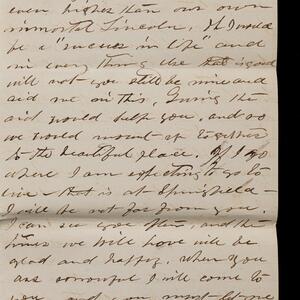 even higher than our own
immortal Lincoln. If I would
be a "success in life" and
in every thing else that is good
will not you still be mine and
aid me in this, Giving the
aid would help you, and so
we would mount up together
to the beautiful place. If I go
where I am expecting to go to
live – that is at Springfield –
I will be not far from you.
I can see you often, and the
times we will have will be
good and happy. when you
are sorrowful I will come to
you and you must let me